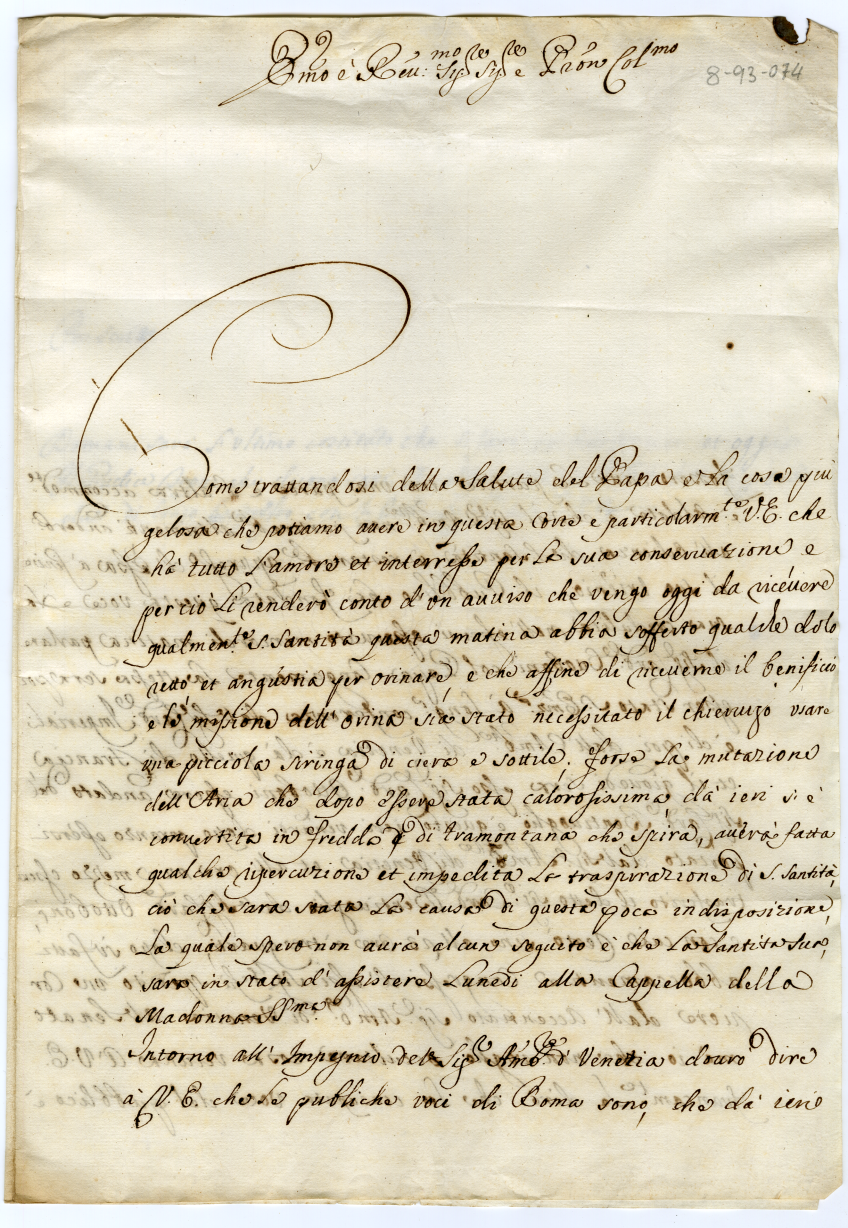 Em.mo è Reu:mo Sig.re Sig.re e Pron Col.mo
8-93-074
Come trattandosi della Salute del Papa e La cosa più
gelosa che potiamo auere in questa Corte e particolarm.te V.E. che
hà tutto L'amore et interresse per La sua conseruazione e
per ciò Li renderò conto d'on auuiso che vengo oggi da riceuere
qualmen.te S. Santità questa matina abbia sofferto qualche dolo
retto et angustia per orinare, è che affine di riceuerne il benificio
e l'emissione dell'orina sia stato necessitato il chierurgo usare
una picciola siringa di ciera e sottile. forse La mutazione
dell'Aria che dopo essere stata calorosissima dà ieri s'è
conuertita in fredda di tramontana che spira, auerà fatta
qualche ripercuzione et impedita La traspirazione di S. Santità,
ciò che sara stata La causa di questa poca indisposizione,
La quale spero non aurà alcun seguito è che La Santità Sua,
sarà in stato d'assistere Lunedi alla Cappella della
Madonna SS.ma
Intorno all'Impegnio del Sig.r Amb.re d'Venetia dourò dire
à V.E. che Le publiche voci di Roma sono, che dà ieri